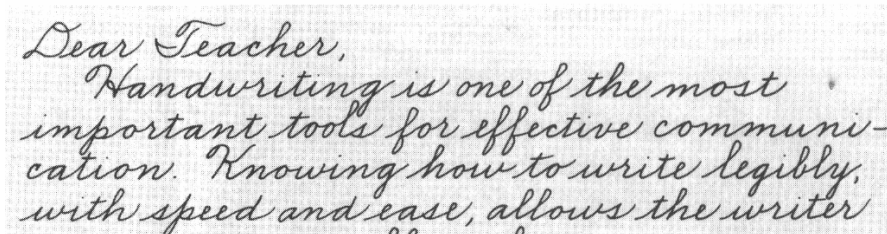 Dear Teacher,
Handwriting is one of the most
important tools for effective communi-
cation. Knowing how to write legibly,
with speed and ease, allows the writer